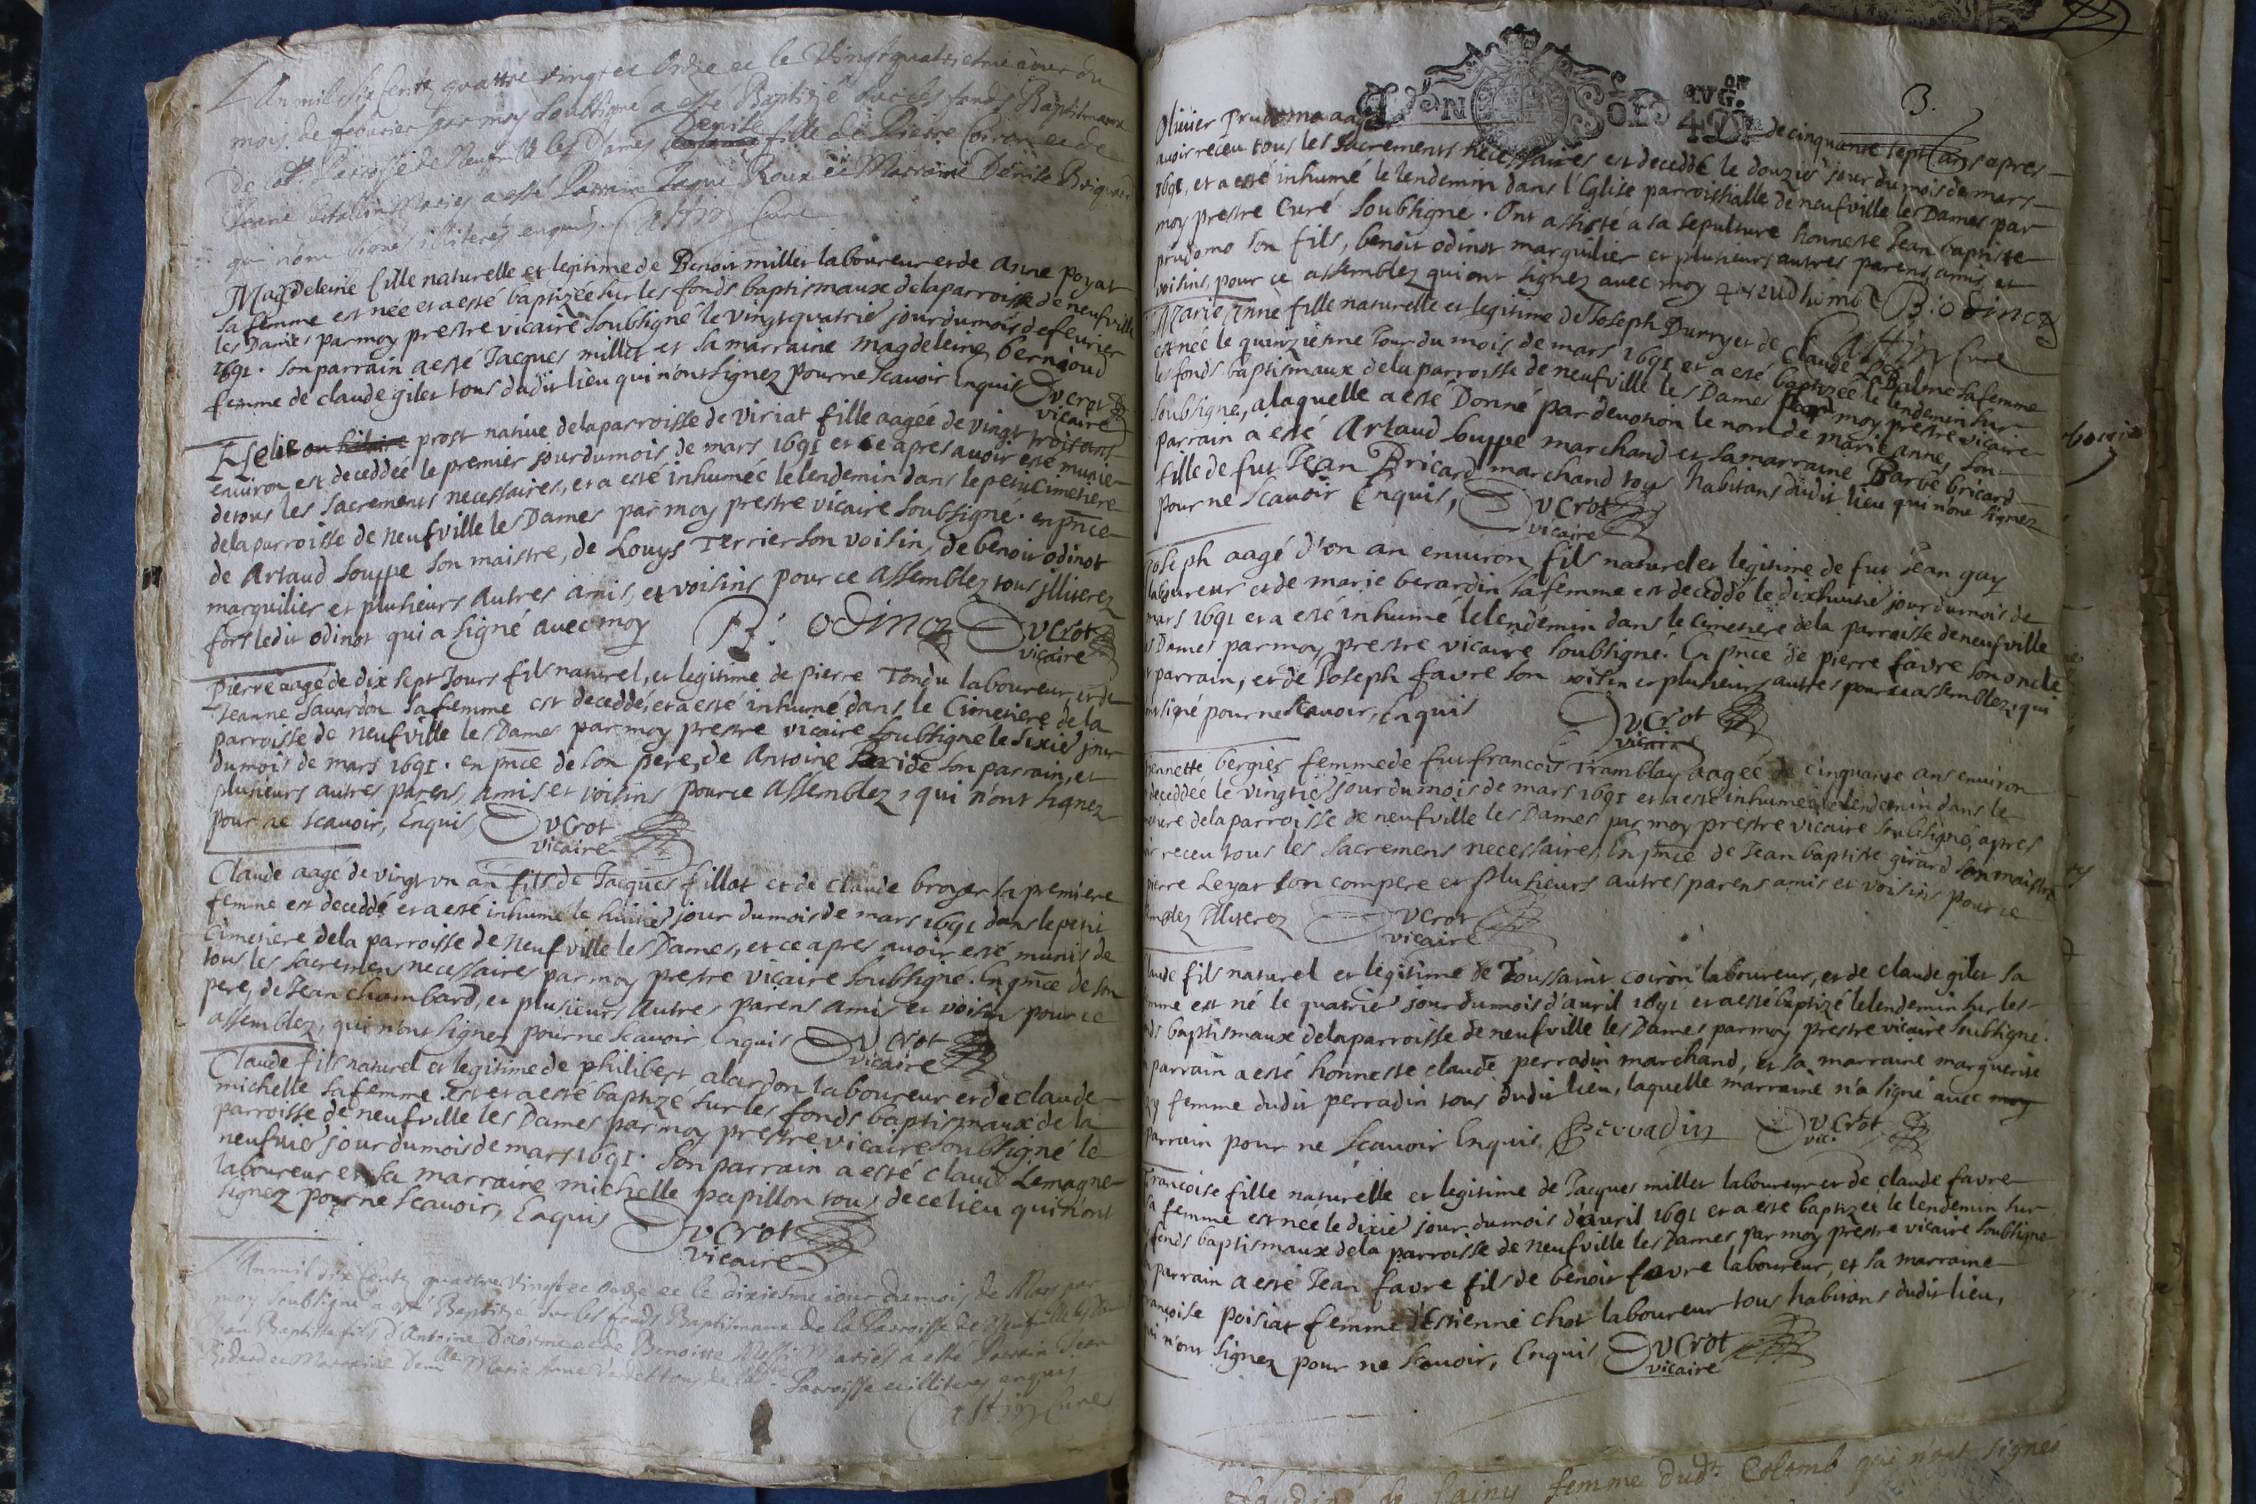 L'An mil six cents quattre vingt et Onze et le Vingt quatriesme iour du
mois de febvrier par moy soubsigné a esté Baptizé sur les fonds Baptismaux
de lad. Parroisse de Neufville les Dames Denise fille de Pierre Coiron et de
mariés a esté Parrain Jaque Roux et Marraine Denise
qui n'ont signés illiterés enquis. Castin Curé
Magdeleine fille naturelle et legitime de Benoit millet laboureur et de Anne poyat
sa femme est née et a esté baptizée sur les fonds baptismaux de la parroisse de neufville
les Dames par moy prestre vicaire soubsigné le vingt quatrie jour du mois de fevrier
1691. son parrain a esté Jacques millet et sa marraine magdeleine bernoud
femme de claude gilet tous dudit lieu qui n'ont signez pour ne scavoir enquis Ducrot
vicaire
prost native de la parroisse de viriat fille aagée de vingt trois ans
environ est deceddée le premier jour du mois de mars 1691 et ce apres avoir esté munie
de tous les sacrements necessaires, et a esté inhumée le lendemin dans le petit cimetiere
de la parroisse de neufville les Dames par moy prestre vicaire soubsigné. en pnce
de Artaud souppe son maistre, de Louys Terrier son voisin, de benoit odinot
marguilier et plusieurs autres amis, et voisins pour ce assemblez tous jlliterez
fors ledit odinot qui a signé avec moy B: odinot Ducrot
vicaire
pierre aagé de dix sept Jours fils naturel, et legitime de pierre Tondu laboureur, et de
Jeanne savardon sa femme est deceddé, et a esté inhumé dans le Cimetiere de la
parroisse de neufville les Dames par moy prestre vicaire soubsigné le sixie jour
du mois de mars 1691. en pnce de son pere, de Antoine son parrain, et
plusieurs autres parens, amis et voisins pour ce assemblez, qui n'ont signez
pour ne scavoir, Enquis Ducrot
vicaire
Claude aagé de vingt un an fils de Jacques fillot et de claude broyer sa premiere
femme est deceddé et a esté inhumé le huitie jour du mois de mars 1691 dans le petit
Cimetiere de la parroisse de Neufville les Dames, et ce apres avoir esté munis de
tous les sacremens necessaires par moy prestre vicaire soubsigné. En pnce de son
pere, de Jean chambard, et plusieurs autres parens amis et voisins pour ce
assemblez, qui n'ont signez pour ne scavoir Enquis Ducrot
vicaire
Claude fils naturel et legitime de philibert alardon laboureur et de claude
michelle sa femme est et a esté baptizé sur les fonds baptismaux de la
parroisse de neufville les Dames par moy prestre vicaire soubsigné le
neufvie jour du mois de mars 1691. Son parrain a esté claude Lemagne
laboureur et sa marraine michelle papillon tous de ce lieu qui n'ont
signez pour ne scavoir, Enquis Ducrot
vicaire
L'An mil six Cents quattre vingt et Onze et le dixiesme iour du mois de Mars par
moy soubsigné a esté Baptizé sur les fonds Baptismaux de la Parroisse de Neufville les Dames
Jean Baptiste fils d'Antoine et de Benoitte Mariés a esté Parrain Jean
et Marraine Marie Anne tous de lad. Parroisse illiteres enquis
Castin Curé
3.
Olivier Prudomo aagé de cinquante sept ans apres
avoir receu tous les sacrements necessaires est deceddé le douzie jour du mois de mars
1691, et a esté inhumé le lendemin dans l'Eglise parroissialle de neufville les Dames par
moy prestre Curé soubsigné. Ont assisté a sa sepulture honneste Jean baptiste
prudomo son fils, benoit odinot marguilier et plusieurs autres parens, amis et
voisins pour ce assemblez qui ont signez avec moy B: odinot
Castin Curé
Marie Anne fille naturelle et legitime de Joseph Durry et de Claude Balme sa femme
est née le quinziesme Jour du mois de mars 1691 et a esté baptizée le lendemin sur
les fonds baptismaux de la parroisse de neufville les Dames par moy prestre vicaire
soubsigné, a laquelle a esté Donné par devotion le nom de marie anne, son
parrain a esté Artaud souppe marchand et sa marraine Barbe bricard
fille de fut Jean Bricard marchand tous habitans dudit lieu qui n'ont signez
pour ne scavoir Enquis, Ducrot
vicaire
Joseph aagé d'un an environ fils naturel et legitime de fut Jean guy
laboureur et de marie berardin sa femme est deceddé le dixhuitie jour du mois de
mars 1691 et a esté inhumé le lendemin dans le cimetiere de la parroisse de neufville
Dames par moy prestre vicaire soubsigné. En pnce de pierre favre son oncle
parrain, et de Joseph favre son voisin et plusieurs autres pour ce assemblez, qui
signé pour ne scavoir, Enquis Ducrot
vicaire
bergier femme de fut francois Tramblay aagée de cinquante ans environ
deceddée le vingtie jour du mois de mars 1691 et a esté inhumée le lendemin dans le
de la parroisse de neufville les Dames par moy prestre vicaire soubsigné, apres
receu tous les sacremens necessaires, En pnce de Jean baptiste girard son maistre
pierre Leyat son compere et plusieurs autres parens amis et voisins pour ce
Illiterez Ducrot
vicaire
fils naturel et legitime de Toussaint coiron laboureur, et de claude gilet sa
est né le quatrie jour du mois d'avril 1691 et a esté baptizé le lendemin sur les
baptismaux de la parroisse de neufville les Dames par moy prestre vicaire soubsigné.
parrain a esté honneste claude perradin marchand, et sa marraine marguerite
femme dudit perradin tous dudit lieu, laquelle marraine n'a signé avec moy
parrain pour ne scavoir Enquis, Perradin Ducrot
vic.
Francoise fille naturelle et legitime de Jacques millet laboureur et de claude favre
sa femme est née le dixie jour du mois d'avril 1691 et a esté baptizée le lendemin sur
fonds baptismaux de la parroisse de neufville les Dames par moy prestre vicaire soubsigné
parrain a esté Jean favre fils de benoit favre laboureur, et sa marraine
poisiat femme d'Estienne chot laboureur tous habitans dudit lieu,
n'ont signez pour ne scavoir, Enquis Ducrot
vicaire
femme dudt. Colomb qui n'ont signés